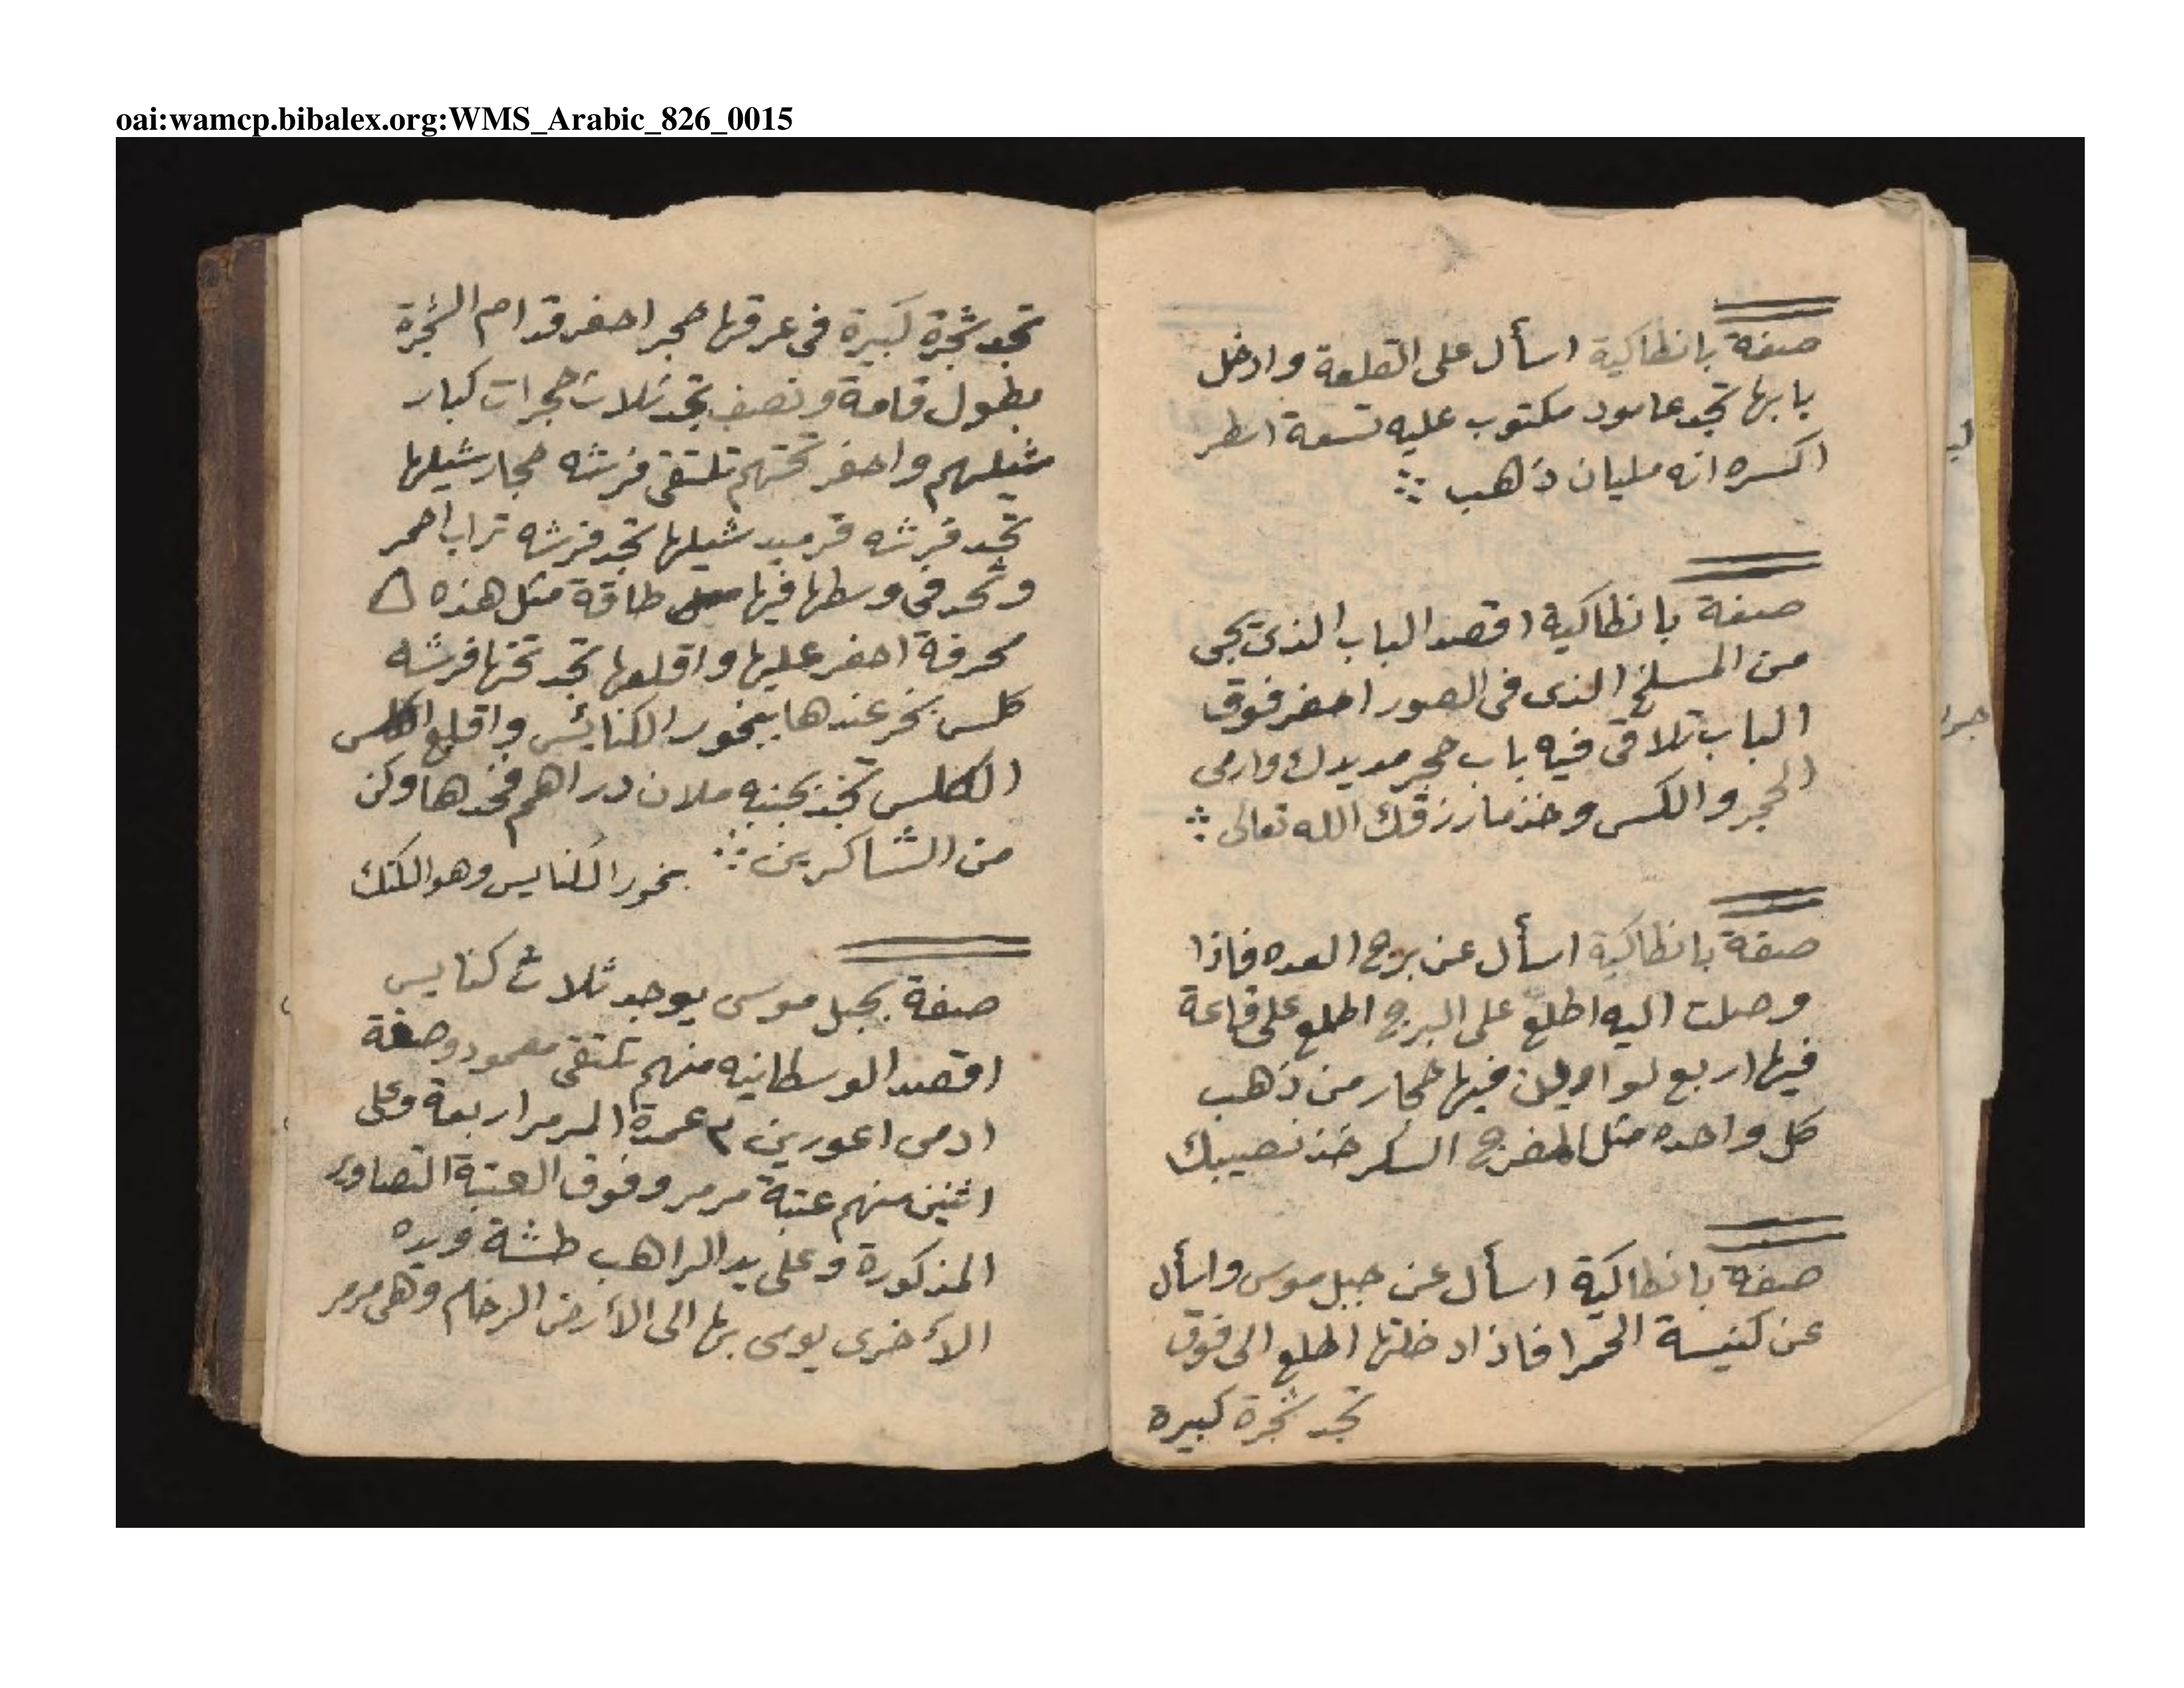 oai:wamcp.bibalex.org:WMS_Arabic_826_0015
صفة بانطاكية اسأل على القلعة وادخل
بابها تجد عامود مكتوب عليه تسعة اسطر
اكسره انه مليان ذهب
صفة بانطاكية اقصد الباب الذى تجى
من المسلخ الذى فى الصور احفر فوق
الباب تلاقى فيه باب حجر مد يدك وارمى
الحجر والكلس وخذ ما رزقك الله تعالى
صفة بانطاكية اسأل عن برج العده فاذا
وصلت اليه اطلع على البرج اطلع على قاعة
فيها اربع فيها حجار من ذهب
كل واحده مثل السكر خذ نصيبك
صفة بانطاكية اسأل عن جبل موسى واسأل
عن كنيسة الحمرا فاذا دخلتها اطلع الى فوق
تجد شجرة كبيرة
تجد شجرة كبيرة فى عرقها حجر احفر قدام الشجرة
بطول قامة ونصف تجد ثلاث حجرات كبار
شيلهم واحفر تحتهم تلتقى فرشه حجار شيلها
تجد فرشه قرميد شيلها تجد فرشه تراب احمر
وتجد فى وسطها فيها طاقة مثل هذه
محرفة احفر عليها واقلعها تجد تحتها فرشه
كلس بخر عندها ببخور الكنايس واقلع
الكلس تجد بجنبه ملان دراهم فخذها وكن
من الشاكرين بخور الكنايس وهو الكتك
صفة بجبل موسى يوجد ثلاث كنايس
اقصد الوسطانيه منهم تلتقى معمود وصفة
ادمى اعورين عمدة المرمر اربعة وعلى
اثنين منهم عتبة مرمر وفوق العتبة التصاوير
المذكورة وعلى يد الراهب طشة ويده
الأخرى يومى بها الى الأرض الرخام وهى مرمر